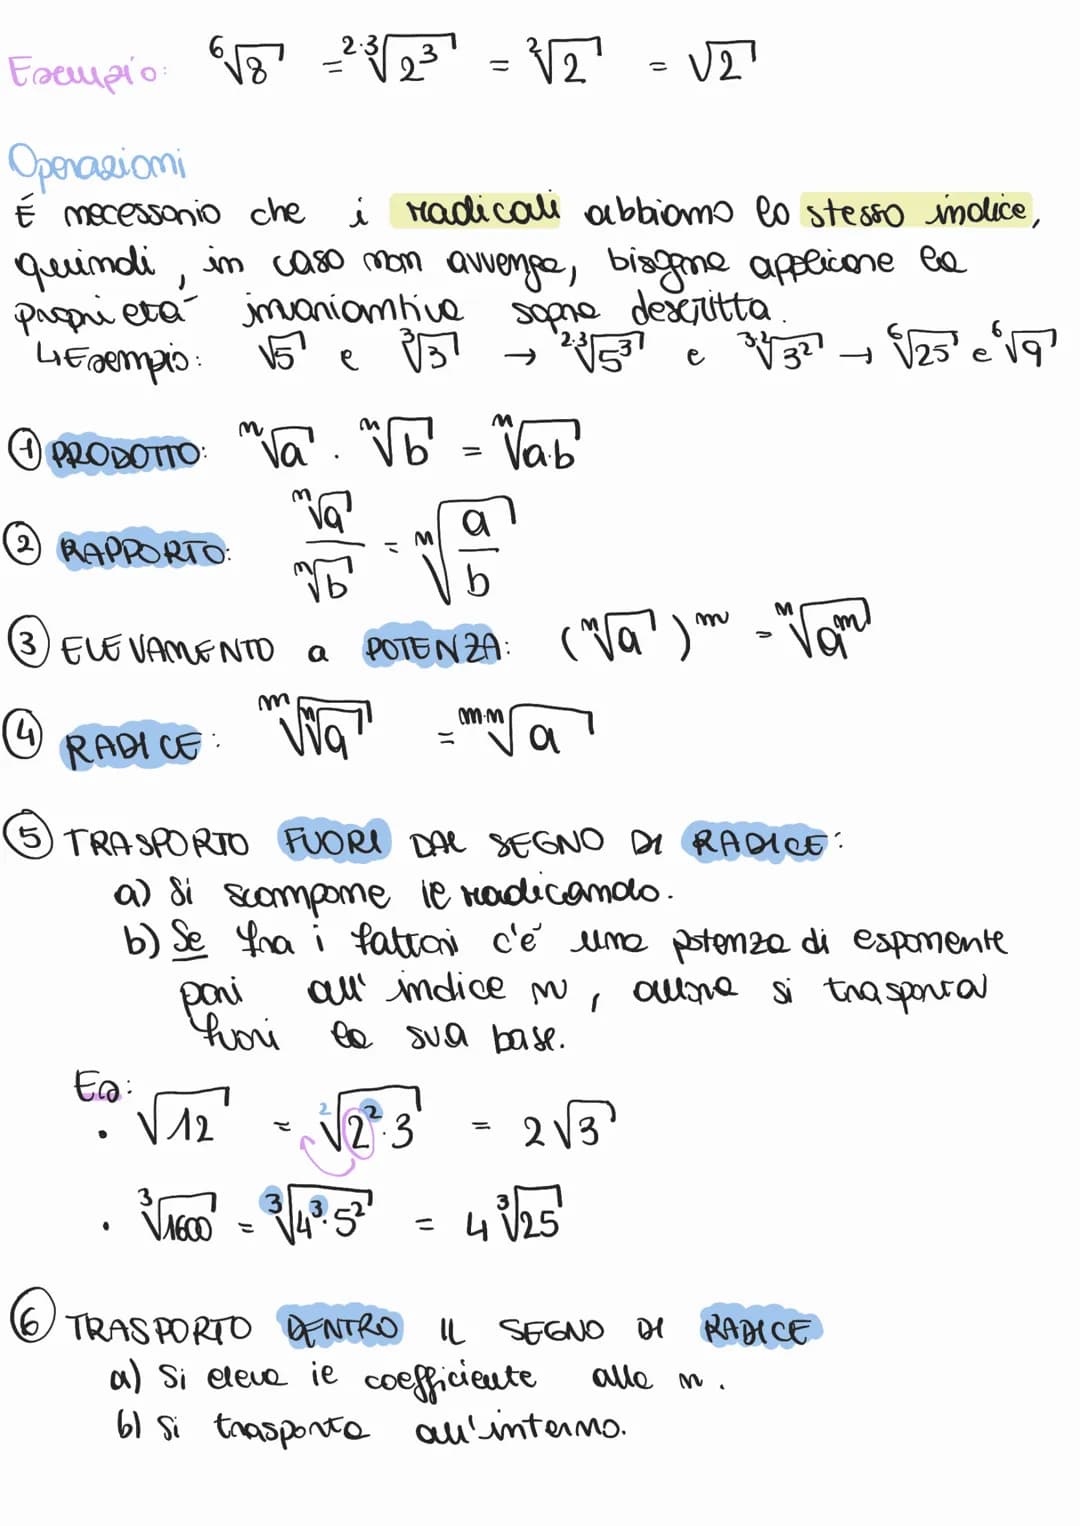 Esempio: ⁶√8 = ²·³√2³ = ²√2 = √2
Operazioni
É necessario che i radicali abbiamo lo stesso indice,
quindi, in caso non avvenga, bisogna applicare la
proprietà invariantiva sopra descritta.
↳Esempio: √5 e ³√3 → ²·³√5³ e ³·²√3² → ⁶√25 e ⁶√9
① PRODOTTO: ⁿ√a · ⁿ√b = ⁿ√a·b
② RAPPORTO: ⁿ√a / ⁿ√b = ⁿ√(a/b)
③ ELEVAMENTO a POTENZA: (ⁿ√a)ᵐ = ⁿ√aᵐ
④ RADICE: ᵐ√ⁿ√a = ᵐ·ⁿ√a
⑤ TRASPORTO FUORI DAL SEGNO DI RADICE:
a) Si scompone il radicando.
b) Se fra i fattori c'è una potenza di esponente
pari all'indice n, allora si trasporta
fuori la sua base.
Es:
· √12 = ²√2²·3 = 2√3
· ³√1600 = ³√4³·5² = 4³√25
⑥ TRASPORTO DENTRO IL SEGNO DI RADICE
a) Si eleva il coefficiente alla n.
b) Si trasporta all'interno.